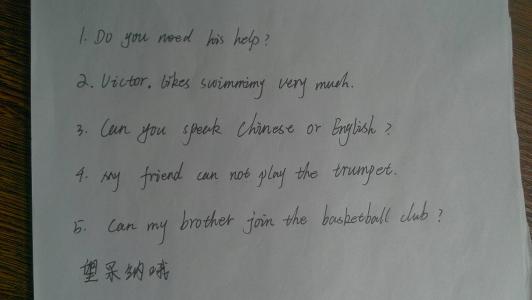 1. Do you need his help?
2. Victor. likes swimming very much.
3. Can you speak Chinese or English?
4. My friend can not play the trumpet.
5. Can my brother join the basketball club?
望采纳哦